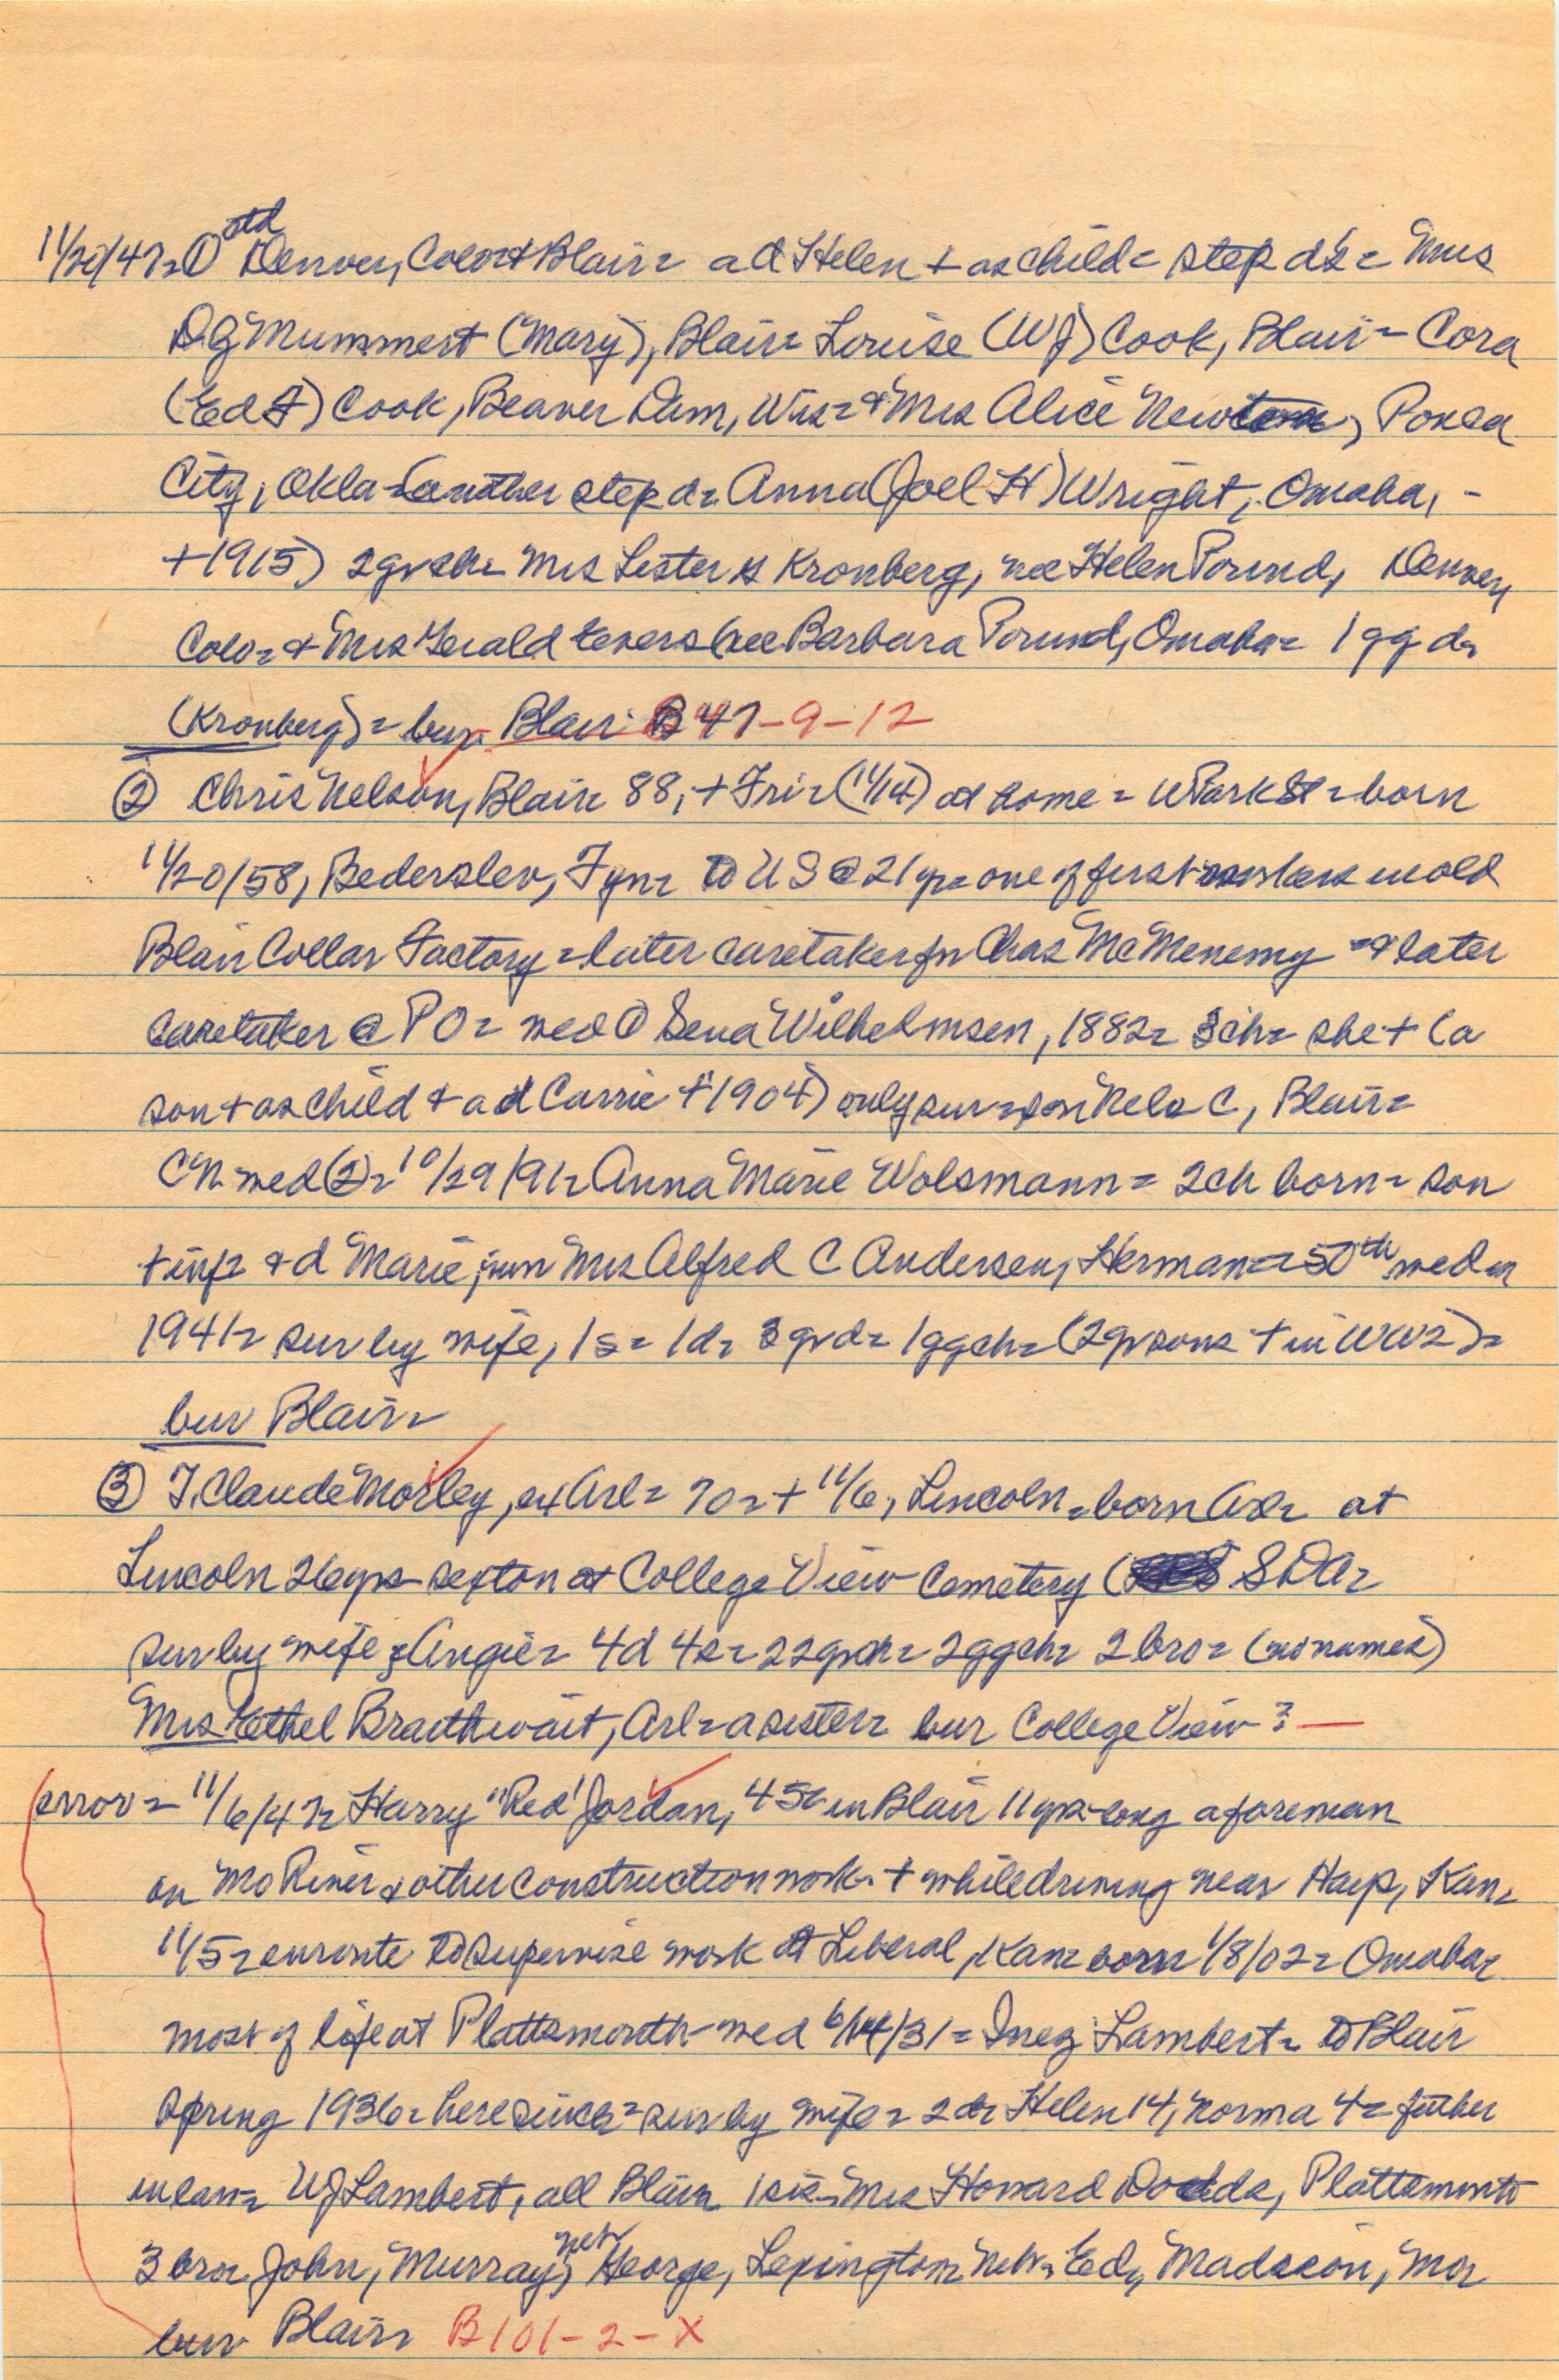 11/20/47= ① ctd Denver, Colo= & Blair= a d Helen + as child= step d's= Mrs
D G Mummert (Mary), Blair= Louise (W J) Cook, Blair= Cora
(Ed F) Cook, Beaver Dam, Wis= & Mrs Alice Newtom, Ponca
City, Okla= (another step d= Anna (Joel H) Wright, Omaha, -
+1915) 2 grch= Mrs Lester Kronberg, nee Helen Pound, Denver,
Colo= & Mrs Gerald (nee Barbara Pound, Omaha= 1 gg d=
(Kronberg)= bur Blair B 47-9-12
② Chris Nelson, Blair= 88, + Fri= (11/14) at home= W Park St= born
11/20/58, Bederslev, Fyn= to US @ 21 yr= one of first workers in old
Blair Collar Factory= later caretaker for Chas McMenemy = & later
caretaker @ PO= med ① Sena Wilhelmsen, 1882= 3 ch= she + (a
son + as child & a d Carrie + 1904) only sur= son Nels C, Blair=
CN med ②= 10/29/91= Anna Marie Wolsmann= 2 ch born= son
+ inf= & d Marie, now Mrs Alfred C Andersen, Herman= 50th med in
1941= sur by wife, 1 s= 1 d= 3 gr d= 1 ggch= (2 gr sons + in WW2)=
bur Blair=
③ J. Claude Morley, ex Arl= 70= + 11/6, Lincoln= born Arl= at
Lincoln 26 yrs= sexton at College View Cemetery ( SDA=
sur by wife, Angie= 4 d 4 s= 22 grch= 2 ggch= 2 bro= (no names)
Mrs Ethel Braithwait, Arl= a sister= bur College View? —
(error= 11/6/47= Harry "Red" Jordan, 45= in Blair 11 yrs= long a foreman
on Mo River & other construction work. + while driving near Harp, Kan=
11/5= enroute to supervise work at Liberal, Kan= born 1/8/02= Omaha=
most of life at Plattsmouth= med 6/14/31= Inez Lambert= to Blair
spring 1936= here since= sur by wife= 2 d= Helen 14, Norma 4= father
in law= W J Lambert, all Blair= 1 sis= Mrs Howard Dodds, Plattsmouth
3 bro= John, Murray, Neb George, Lexington= Neb= Ed, Madison, Mo=
bur Blair= B 101-2-X